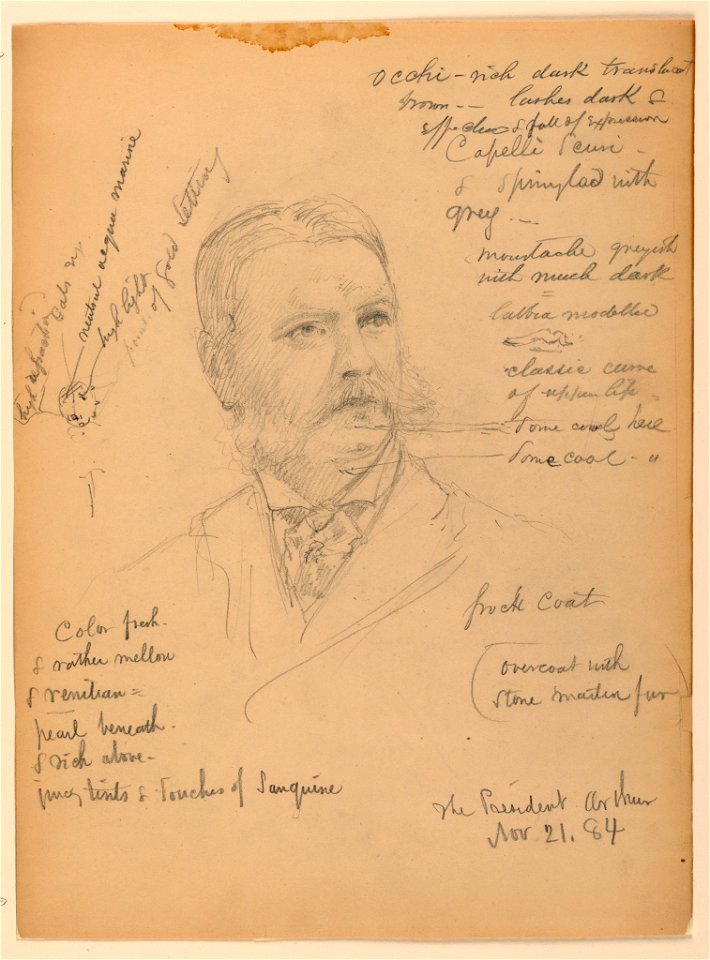 occhi - rich dark translucent
brown -- lashes dark &
effective & full of expression
Capelli scuri -
& sprinkled with
grey --
moustache greyish
with much dark
labbra modelled
classic curve
of upper lip -
some cool here
some cool - "
frock coat
(overcoat with
stone marten fur)
The President Arthur
Nov 21. 84
neutral acqua marine
high light
point of Gold Setting
high
Color fresh -
& rather mellow
& venitian =
pearl beneath -
& rich above -
juicy tints & touches of Sanguine